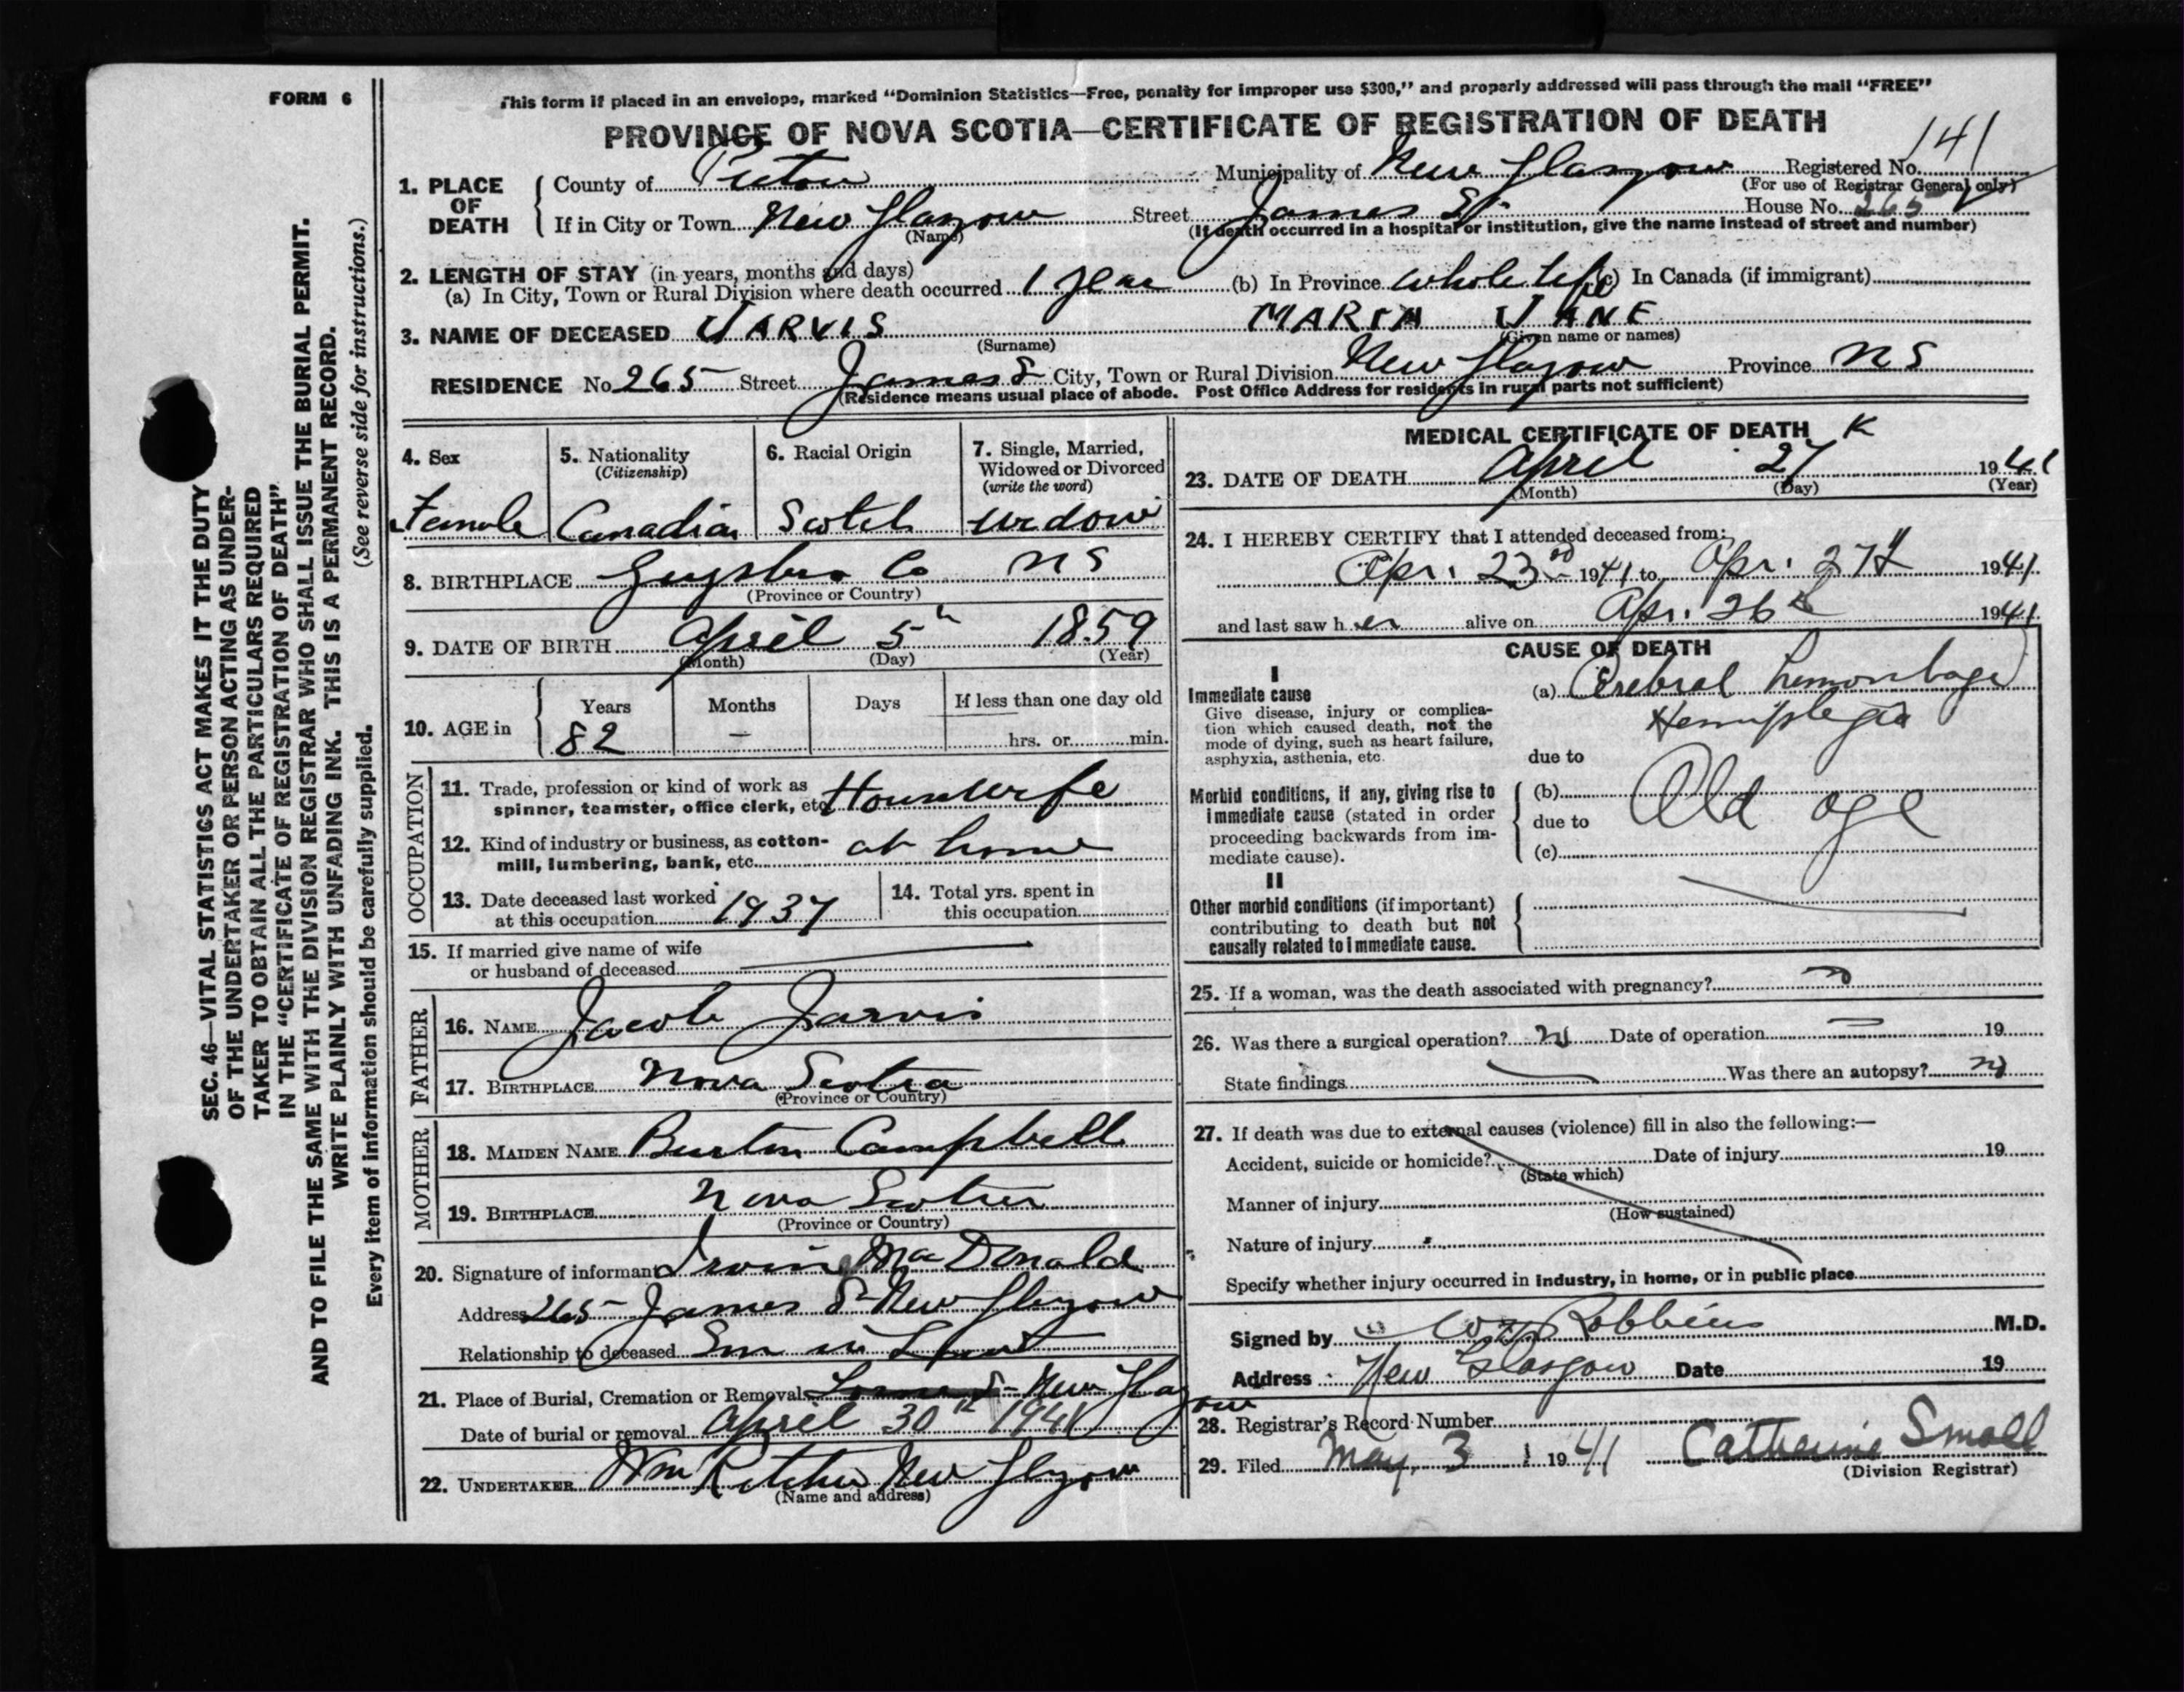 FORM 6
This form if placed in an envelope, marked “Dominion Statistics—Free, penalty for improper use $300,” and properly addressed will pass through the mail “FREE”
PROVINCE OF NOVA SCOTIA—CERTIFICATE OF REGISTRATION OF DEATH
141
1. PLACE OF DEATH
County of Pictou Municipality of New Glasgow Registered No.
(For use of Registrar General only)
House No. 265
If in City or Town New Glasgow Street James St.
(Name) (If death occurred in a hospital or institution, give the name instead of street and number)
2. LENGTH OF STAY (in years, months and days)
(a) In City, Town or Rural Division where death occurred 1 year (b) In Province whole life (c) In Canada (if immigrant)
3. NAME OF DECEASED JARVIS MARIA JANE
(Surname) (Given name or names)
RESIDENCE No. 265 Street James S City, Town or Rural Division New Glasgow Province NS
(Residence means usual place of abode. Post Office Address for residents in rural parts not sufficient)
4. Sex
Female
5. Nationality
(Citizenship)
Canadian
6. Racial Origin
Scotch
7. Single, Married,
Widowed or Divorced
(write the word)
Widow
8. BIRTHPLACE Guysboro Co NS
(Province or Country)
9. DATE OF BIRTH April 5th 1859
(Month) (Day) (Year)
10. AGE in
Years Months Days If less than one day old
82 — hrs. or min.
OCCUPATION
11. Trade, profession or kind of work as
spinner, teamster, office clerk, etc. Housewife
12. Kind of industry or business, as cotton-
mill, lumbering, bank, etc. at home
13. Date deceased last worked
at this occupation 1937
14. Total yrs. spent in
this occupation
15. If married give name of wife
or husband of deceased
FATHER
16. NAME Jacob Jarvis
17. BIRTHPLACE Nova Scotia
(Province or Country)
MOTHER
18. MAIDEN NAME Burton Campbell
19. BIRTHPLACE Nova Scotia
(Province or Country)
20. Signature of informant Irwin MacDonald
Address 265 James S New Glasgow
Relationship to deceased Son in Law
21. Place of Burial, Cremation or Removal New Glasgow
Date of burial or removal April 30th 1941
22. UNDERTAKER Wm New Glasgow
(Name and address)
MEDICAL CERTIFICATE OF DEATH K
23. DATE OF DEATH April 27 1941
(Month) (Day) (Year)
24. I HEREBY CERTIFY that I attended deceased from:
Apr. 23rd 1941 to Apr. 27th 1941
and last saw her alive on Apr. 26th 1941
CAUSE OF DEATH
I
Immediate cause
Give disease, injury or complica-
tion which caused death, not the
mode of dying, such as heart failure,
asphyxia, asthenia, etc.
(a) Cerebral hemorrhage
Hemiplegia
due to
Morbid conditions, if any, giving rise to
immediate cause (stated in order
proceeding backwards from im-
mediate cause).
(b) Old age
due to
(c)
II
Other morbid conditions (if important)
contributing to death but not
causally related to immediate cause.
25. If a woman, was the death associated with pregnancy? no
26. Was there a surgical operation? no Date of operation 19
State findings Was there an autopsy? no
27. If death was due to external causes (violence) fill in also the following:—
Accident, suicide or homicide? Date of injury 19
(State which)
Manner of injury
(How sustained)
Nature of injury
Specify whether injury occurred in industry, in home, or in public place
Signed by Robbins M.D.
Address New Glasgow Date 19
28. Registrar's Record Number
29. Filed May 3 1941 Catherine Small
(Division Registrar)
SEC. 46—VITAL STATISTICS ACT MAKES IT THE DUTY
OF THE UNDERTAKER OR PERSON ACTING AS UNDER-
TAKER TO OBTAIN ALL THE PARTICULARS REQUIRED
IN THE “CERTIFICATE OF REGISTRATION OF DEATH”
AND TO FILE THE SAME WITH THE DIVISION REGISTRAR WHO SHALL ISSUE THE BURIAL PERMIT.
WRITE PLAINLY WITH UNFADING INK. THIS IS A PERMANENT RECORD.
(See reverse side for instructions.)
Every item of information should be carefully supplied.